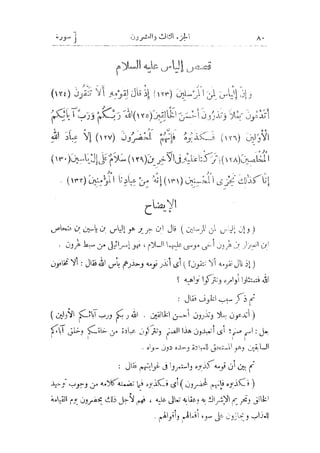 ٨٠ الجزء الثالث والعشرون سورة
قصص إلياس عليه السلام
وإن إلياس لمن المرسلين (١٢٣) إذ قال لقومه ألا تتقون (١٢٤)
أتدعون بعلا وتذرون أحسن الخالقين (١٢٥) الله ربكم ورب آبائكم
الأولين (١٢٦) فكذبوه فإنهم لمحضرون (١٢٧) إلا عباد الله
المخلصين (١٢٨) وتركنا عليه في الآخرين (١٢٩) سلام على إلياسين (١٣٠)
إنا كذلك نجزى المحسنين (١٣١) إنه من عبادنا المؤمنين (١٣٢) .
الإيضاح
( وإن إلياس لمن المرسلين ) قال ابن جرير هو إلياس بن ياسين بن فنحاص
ابن العيزار بن هرون أخى موسى عليهما السلام ، فهو إسرائيلى من سبط هرون .
( إذ قال لقومه ألا تتقون ؟ ) أى أنذر قومه وحذرهم بأس الله فقال : ألا تخافون
الله فتمتثلوا أوامره وتتركوا نواهيه ؟
ثم ذكر سبب الخوف فقال :
( أتدعون بعلا وتذرون أحسن الخالقين . الله ربكم ورب آبائكم الأولين )
بعل : اسم صنم ؛ أى أتعبدون هذا الصنم وتتركون عبادة من خلقكم وخلق آباءكم
السابقين وهو المستحق للعبادة وحده دون سواه .
ثم بين أن قومه كذبوه واستمروا فى غوايتهم فقال :
( فكذبوه فإنهم لمحضرون ) أى فكذبوه فيما تضمنه كلامه من وجوب توحيد
الخالق وتحريم الإشراك به وعقابه تعالى عليه ، فهم لأجل ذلك يحضرون يوم القيامة
للعذاب ويجازون على سوء أفعالهم وأقوالهم .